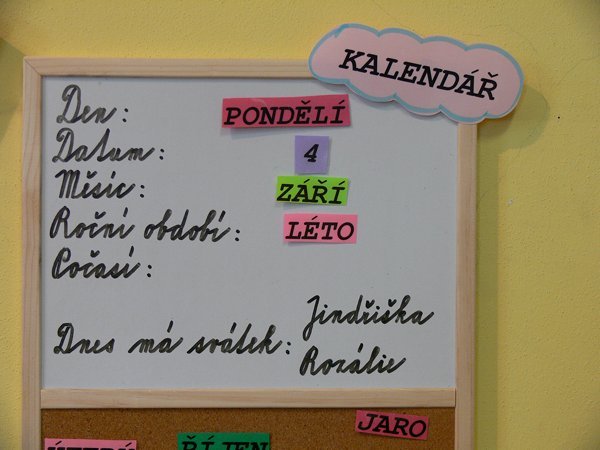 KALENDÁŘ
Den: PONDĚLÍ
Datum: 4
Měsíc: ZÁŘÍ
Roční období: LÉTO
Počasí:
Jindřiška
Dnes má svátek:
Rozálie
JARO
ÚTERÝ ŘÍJEN